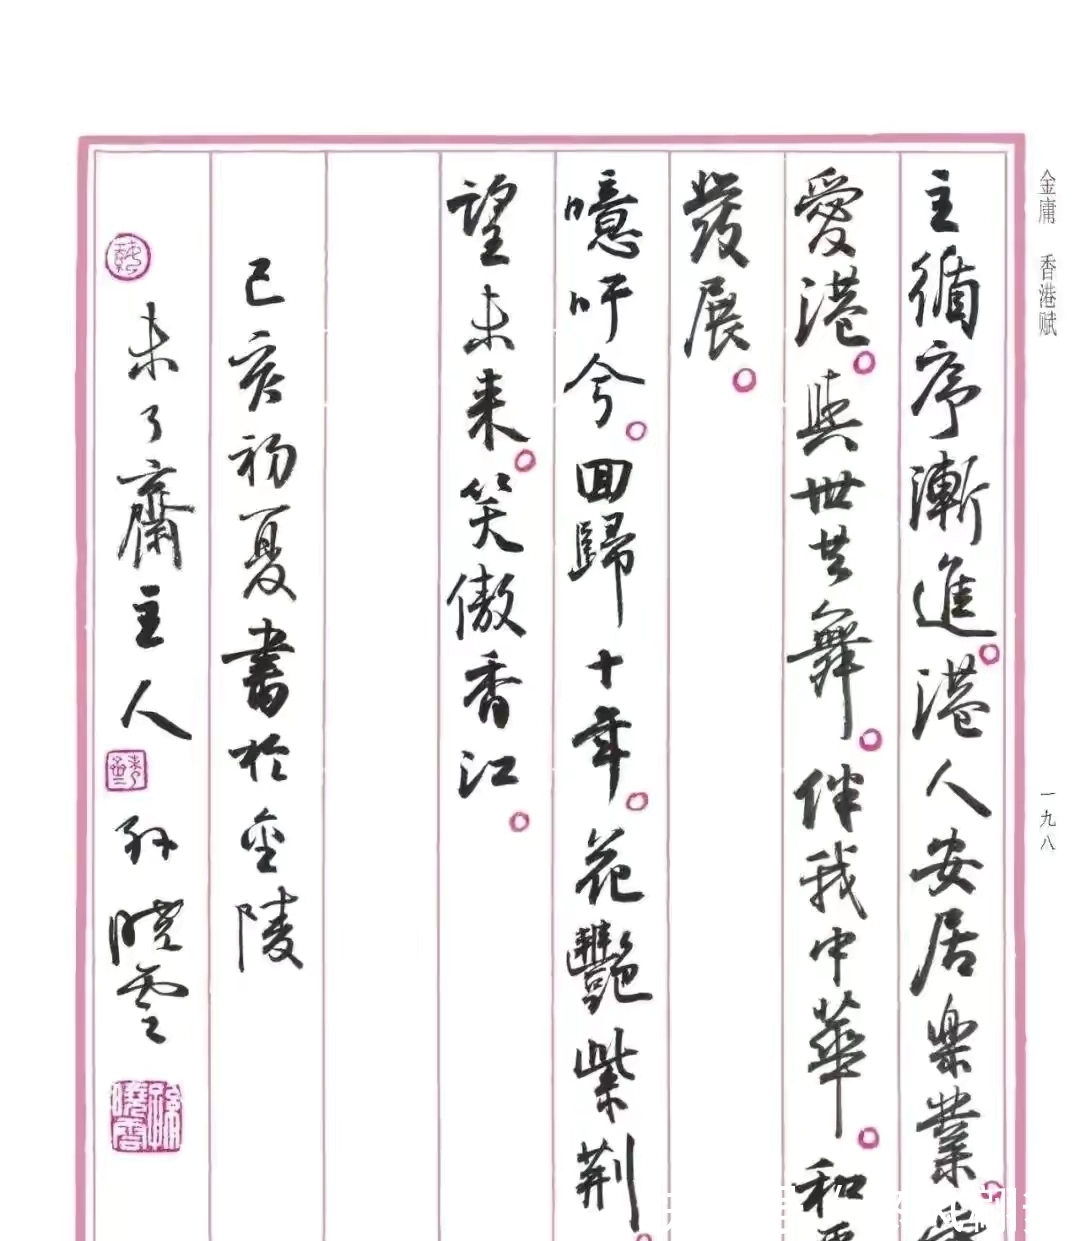 金庸 香港赋
一九八
主循序漸進。港人安居樂業
愛港。與世共舞。伴我中華。和
發展。
噫吁兮。回歸十年。花艷紫荆
望未来。笑傲香江。
己亥初夏書於金陵
未了齋主人 孙曉雲